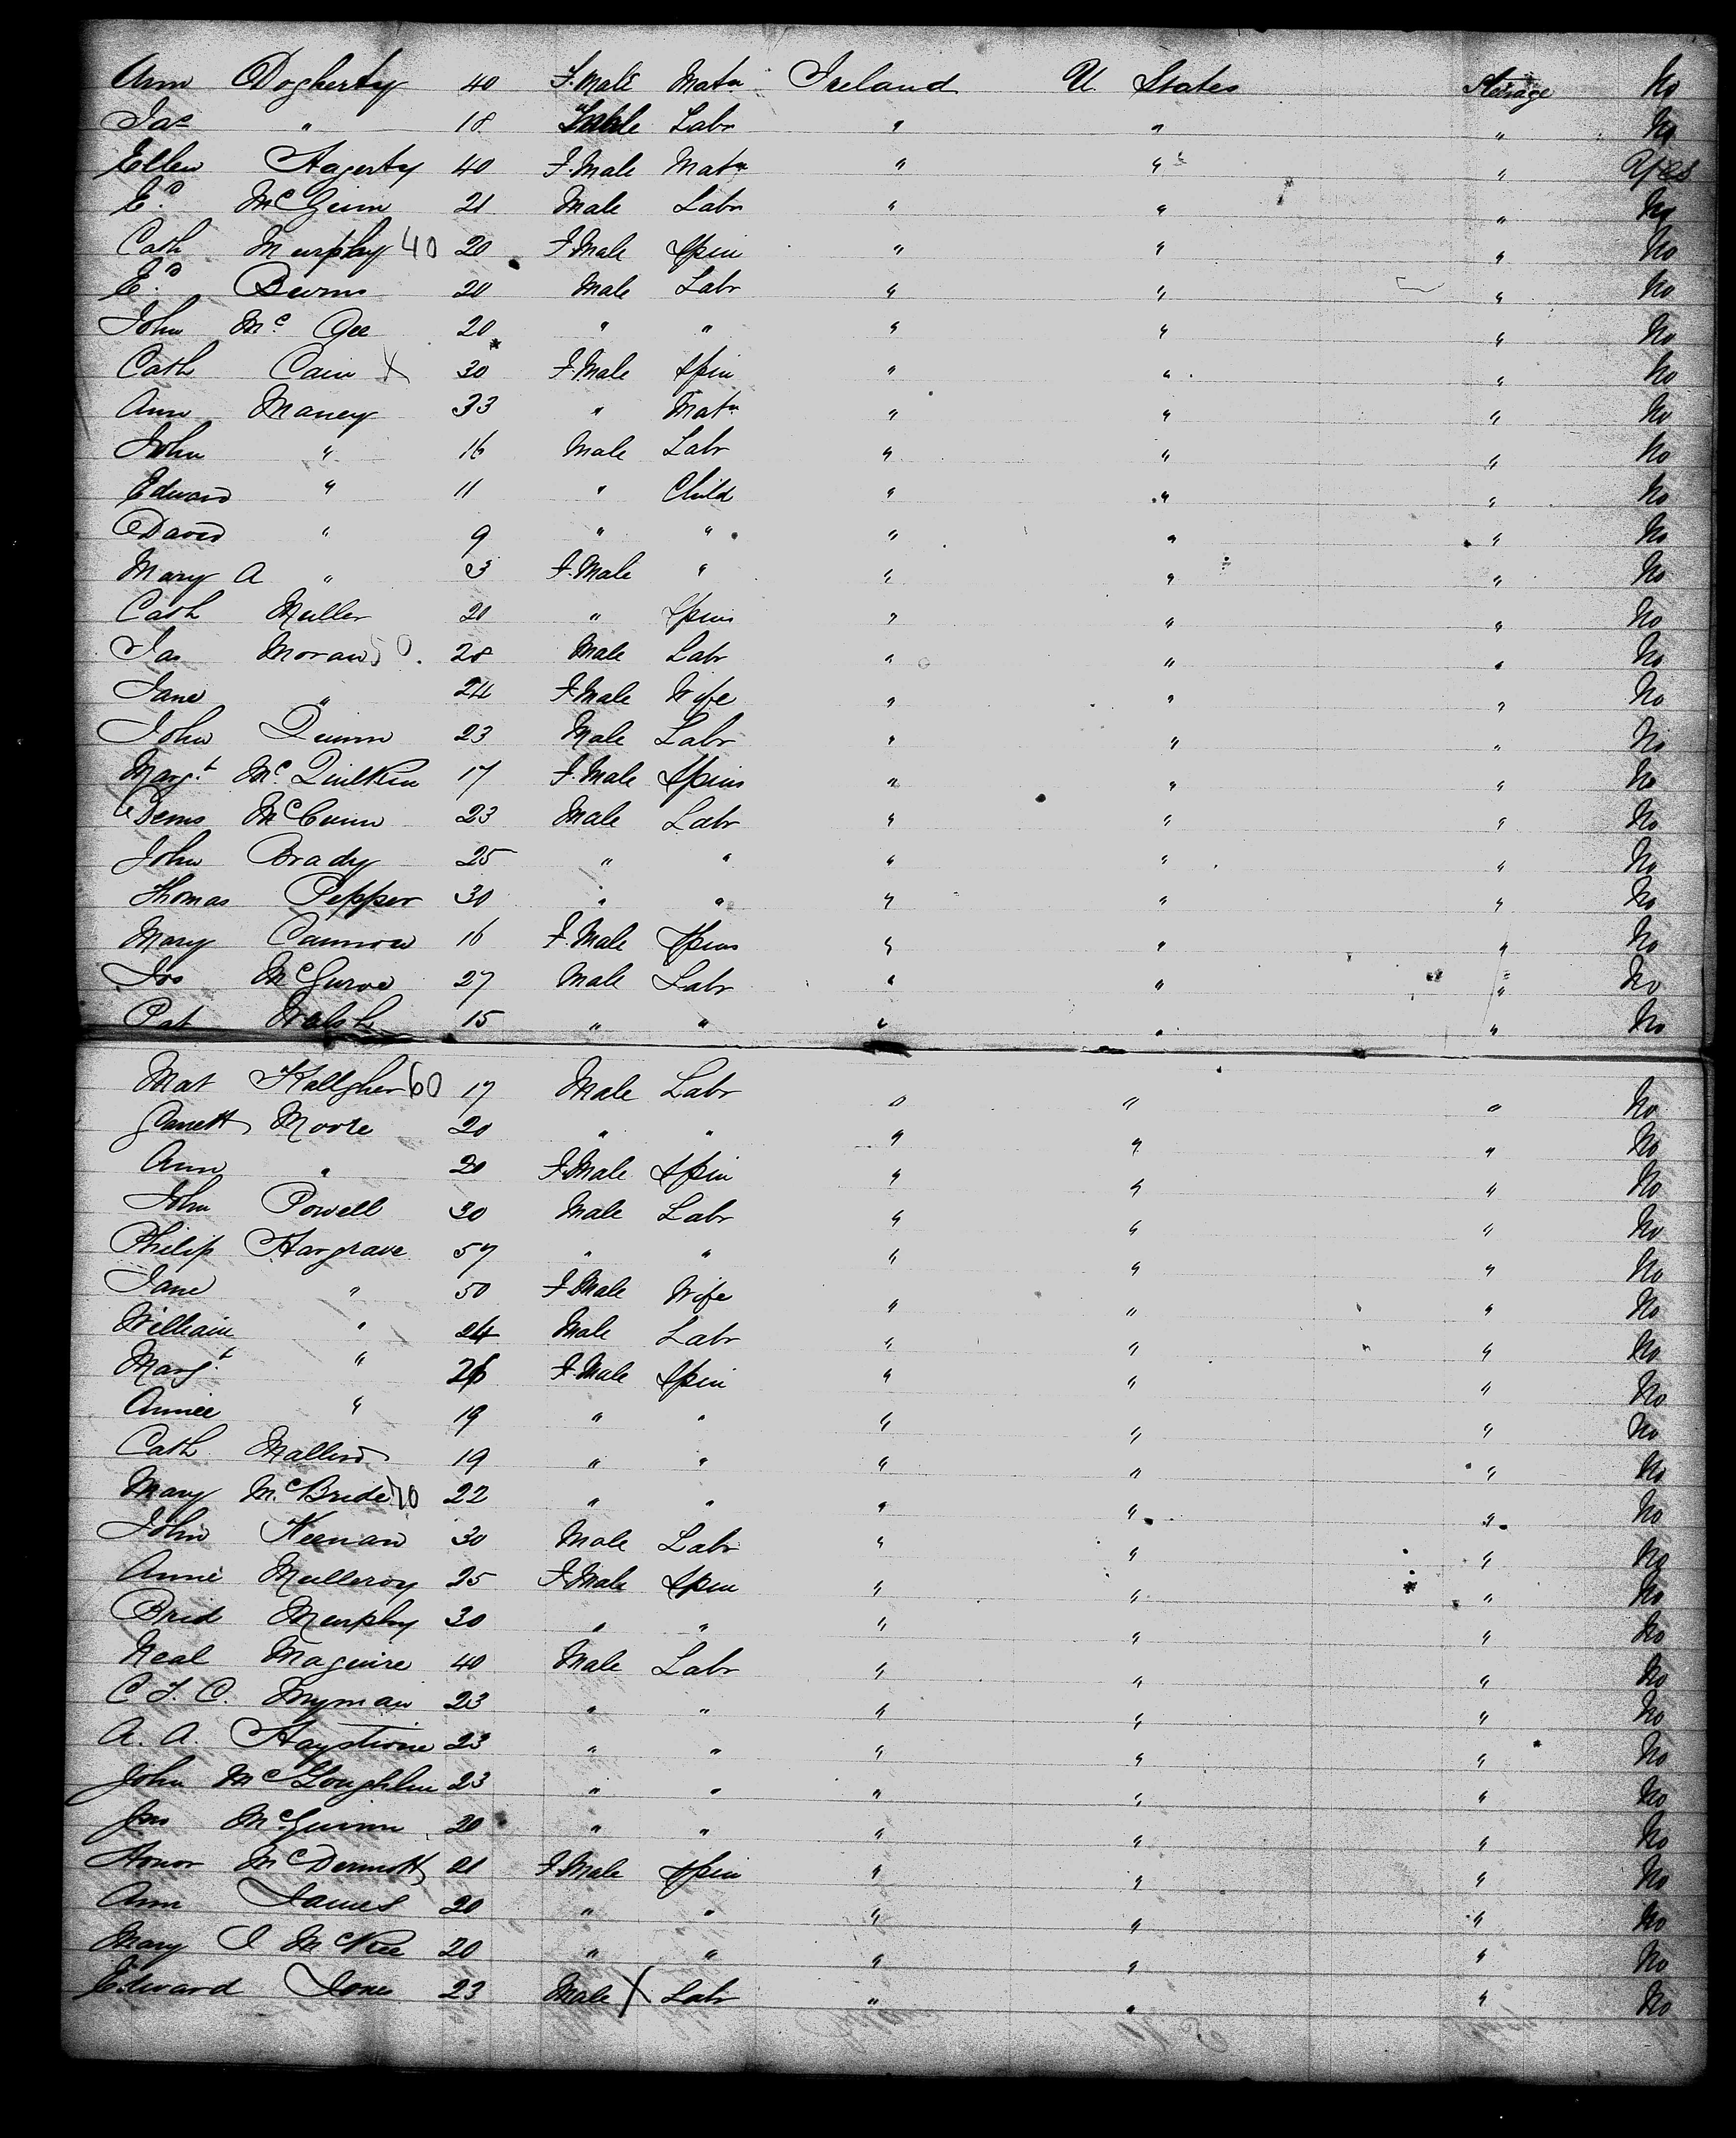 Ann Dogherty 40 F.Male Matn Ireland U States Steerage No
Jas " 18 Male Labr " " " No
Ellen Hagerty 40 F.Male Matn " " " Yes
Ed McGinn 21 Male Labr " " " No
Cath Murphy 40 20 F.Male Spin " " " No
Ed Burns 20 Male Labr " " " No
John Mc Gee 20 " " " " " No
Cath Cain X 30 F.Male Spin " " " No
Ann Maney 33 " Matn " " " No
John " 16 Male Labr " " " No
Edward " 11 " Child " " " No
David " 9 " " " " " No
Mary A " 3 F.Male " " " " No
Cath Muller 20 " Spins " " " No
Jas Moran 50 28 Male Labr " " " No
Jane " 24 F.Male Wife " " " No
John Quinn 23 Male Labr " " " No
Margt Mc Quilken 17 F.Male Spins " " " No
Denis McCunn 23 Male Labr " " " No
John Brady 25 " " " " " No
Thomas Pepper 30 " " " " " No
Mary Cannon 16 F.Male Spins " " " No
Jos McGurve 27 Male Labr " " " No
Pat Walsh 15 " " " " " No
Mat Kallgher 60 17 Male Labr " " " No
Garrett Moore 20 " " " " " No
Ann " 20 F.Male Spin " " " No
John Powell 30 Male Labr " " " No
Philip Hargrave 57 " " " " " No
Jane " 50 F.Male Wife " " " No
William " 24 Male Labr " " " No
Margt " 26 F.Male Spin " " " No
Annie " 19 " " " " " No
Cath 19 " " " " " No
Mary McBride 70 22 " " " " " No
John Keenan 30 Male Labr " " " No
Annie Mulleroy 25 F.Male Spin " " " No
Brid Murphy 30 " " " " " No
Neal Maguire 40 Male Labr " " " No
C F. C. 23 " " " " " No
A. A. Haystione 23 " " " " " No
John McGloughlin 23 " " " " " No
Jas McGuinn 20 " " " " " No
Honor McDermott 21 F.Male Spin " " " No
Ann James 20 " " " " " No
Mary J McKee 20 " " " " " No
Edward Jones 23 Male X Labr " " " No